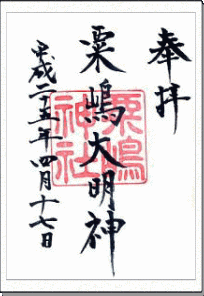 奉拝
粟嶋大明神
粟嶋
神社
平成二十五年四月十七日